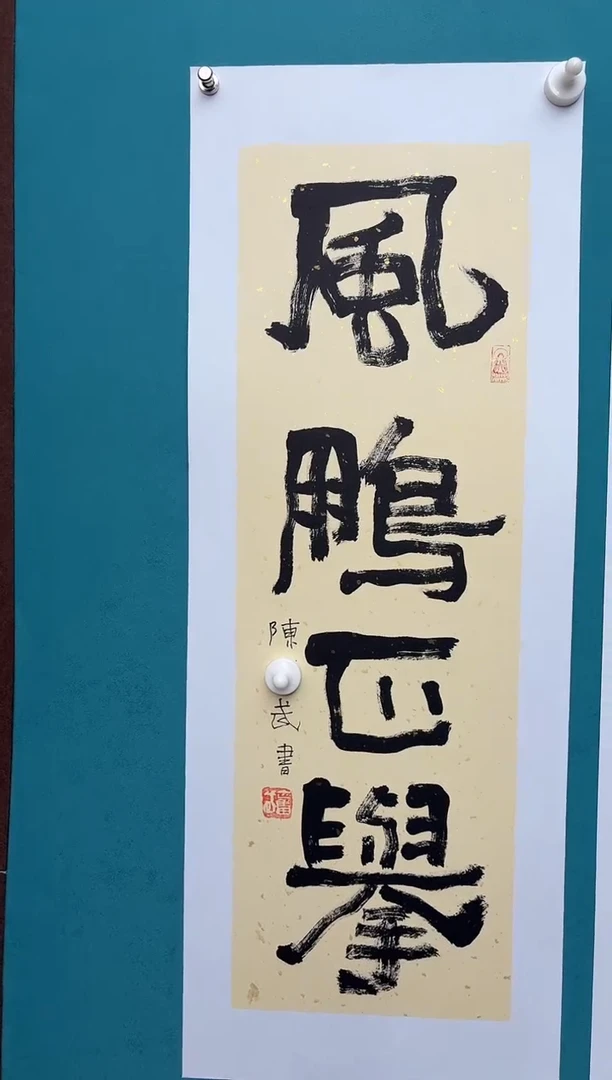 風鵬正舉
陳武書